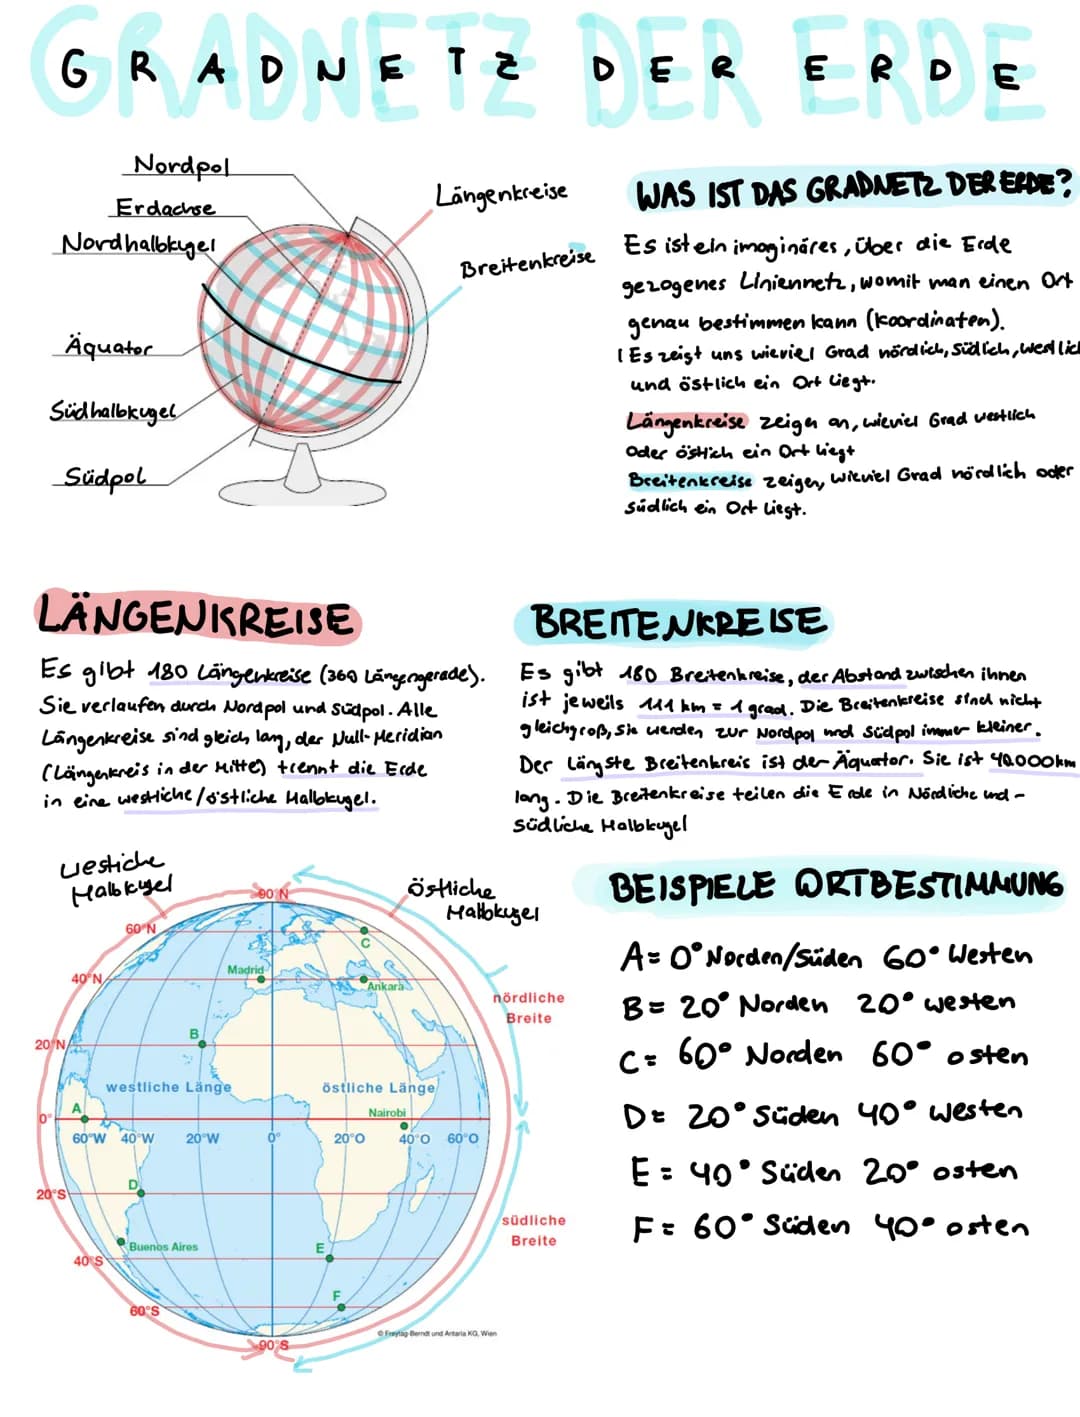 GRADNETZ DER ERDE
GRADNETZ DER ERDE
Nordpol
Erdachse
Nordhalbkugel
Äquator
Südhalbkugel
Südpol
Längenkreise
Breitenkreise
WAS IST DAS GRADNETZ DER ERDE?
Es ist ein imaginäres, über die Erde
gezogenes Liniennetz, womit man einen Ort
genau bestimmen kann (Koordinaten).
! Es zeigt uns wieviel Grad nördlich, südlich, westlich
und östlich ein Ort liegt.
Längenkreise zeigen an, wieviel Grad westlich
oder östlich ein Ort liegt
Breitenkreise zeigen, wieviel Grad nördlich oder
südlich ein Ort liegt.
LÄNGENKREISE
Es gibt 180 Längenkreise (360 Längengerade).
Sie verlaufen durch Nordpol und Südpol. Alle
Längenkreise sind gleich lang, der Null-Meridian
(Längenkreis in der Mitte) trennt die Erde
in eine westliche/östliche Halbkugel.
BREITENKREISE
Es gibt 180 Breitenkreise, der Abstand zwischen ihnen
ist jeweils 111 km = 1 grad. Die Breitenkreise sind nicht
gleichgroß, sie werden zur Nordpol und Südpol immer kleiner.
Der längste Breitenkreis ist der Äquator. Sie ist 40.000km
lang. Die Breitenkreise teilen die Erde in Nördliche und -
südliche Halbkugel
westliche
Halbkugel
östliche
Halbkugel
90°N
60°N
40°N
20°N
0°
20°S
40°S
60°S
90°S
C
Madrid
Ankara
B
westliche Länge
östliche Länge
A
Nairobi
60°W 40°W 20°W 0° 20°O 40°O 60°O
D
Buenos Aires
E
F
nördliche
Breite
südliche
Breite
© Freytag-Berndt und Artaria KG, Wien
BEISPIELE ORTBESTIMMUNG
A= 0° Norden/Süden 60° Westen
B= 20° Norden 20° westen
C= 60° Norden 60° osten
D= 20° Süden 40° westen
E= 40° Süden 20° osten
F= 60° Süden 40° osten